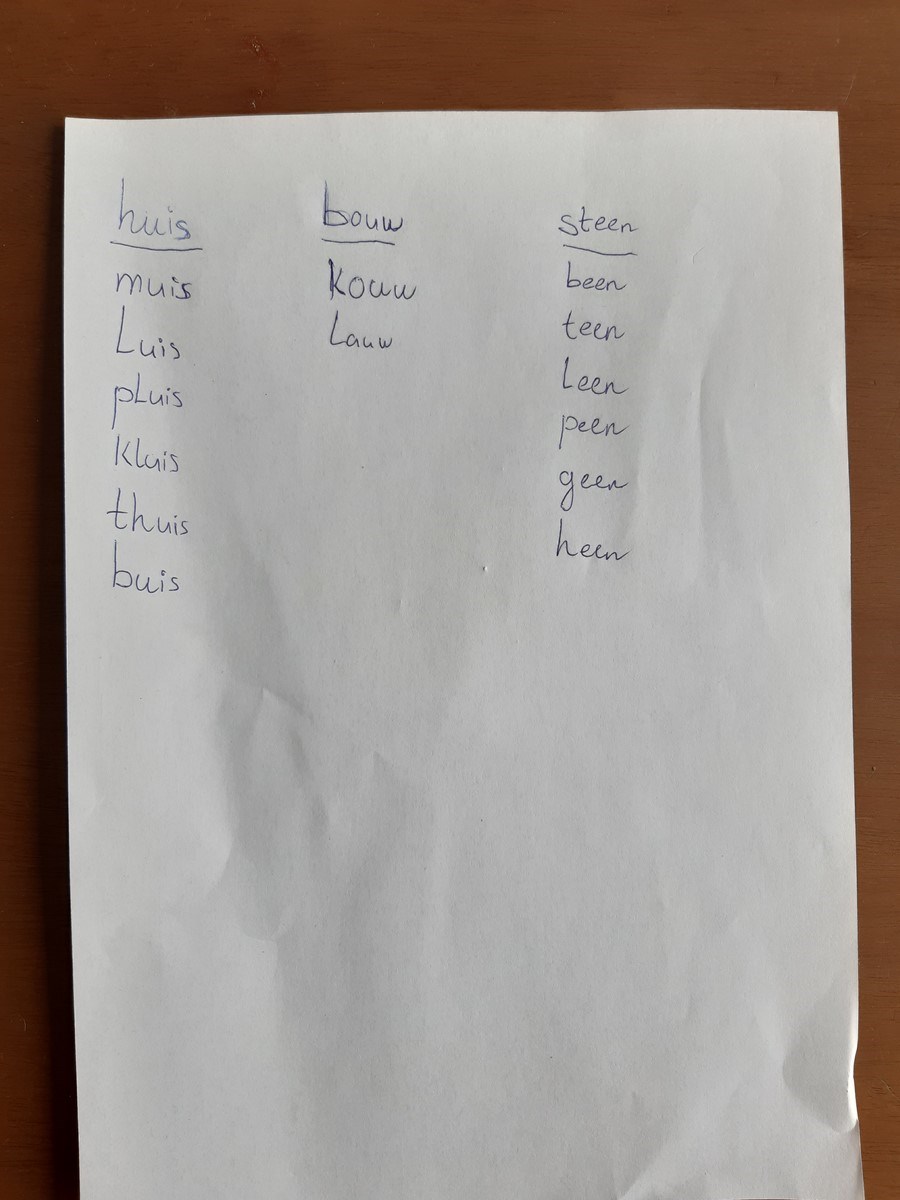 huis
muis
Luis
pLuis
Kluis
thuis
buis
bouw
Kouw
Lauw
steen
been
teen
Leen
peen
geen
heen